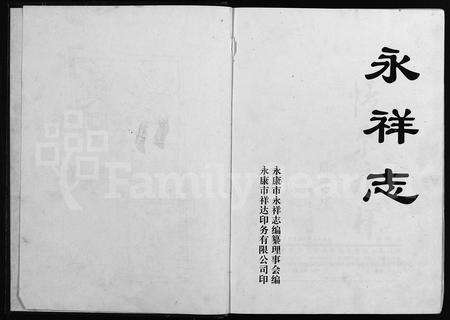 永祥志
永康市永祥志编纂理事会编
永康市祥达印务有限公司印